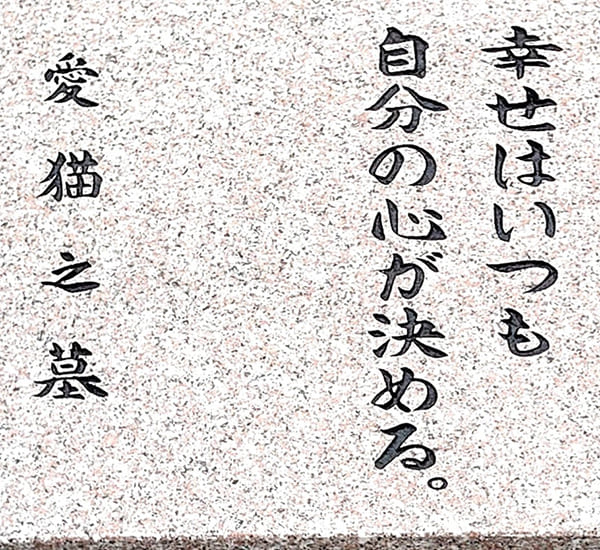 幸せはいつも
自分の心が決める。
愛猫之墓